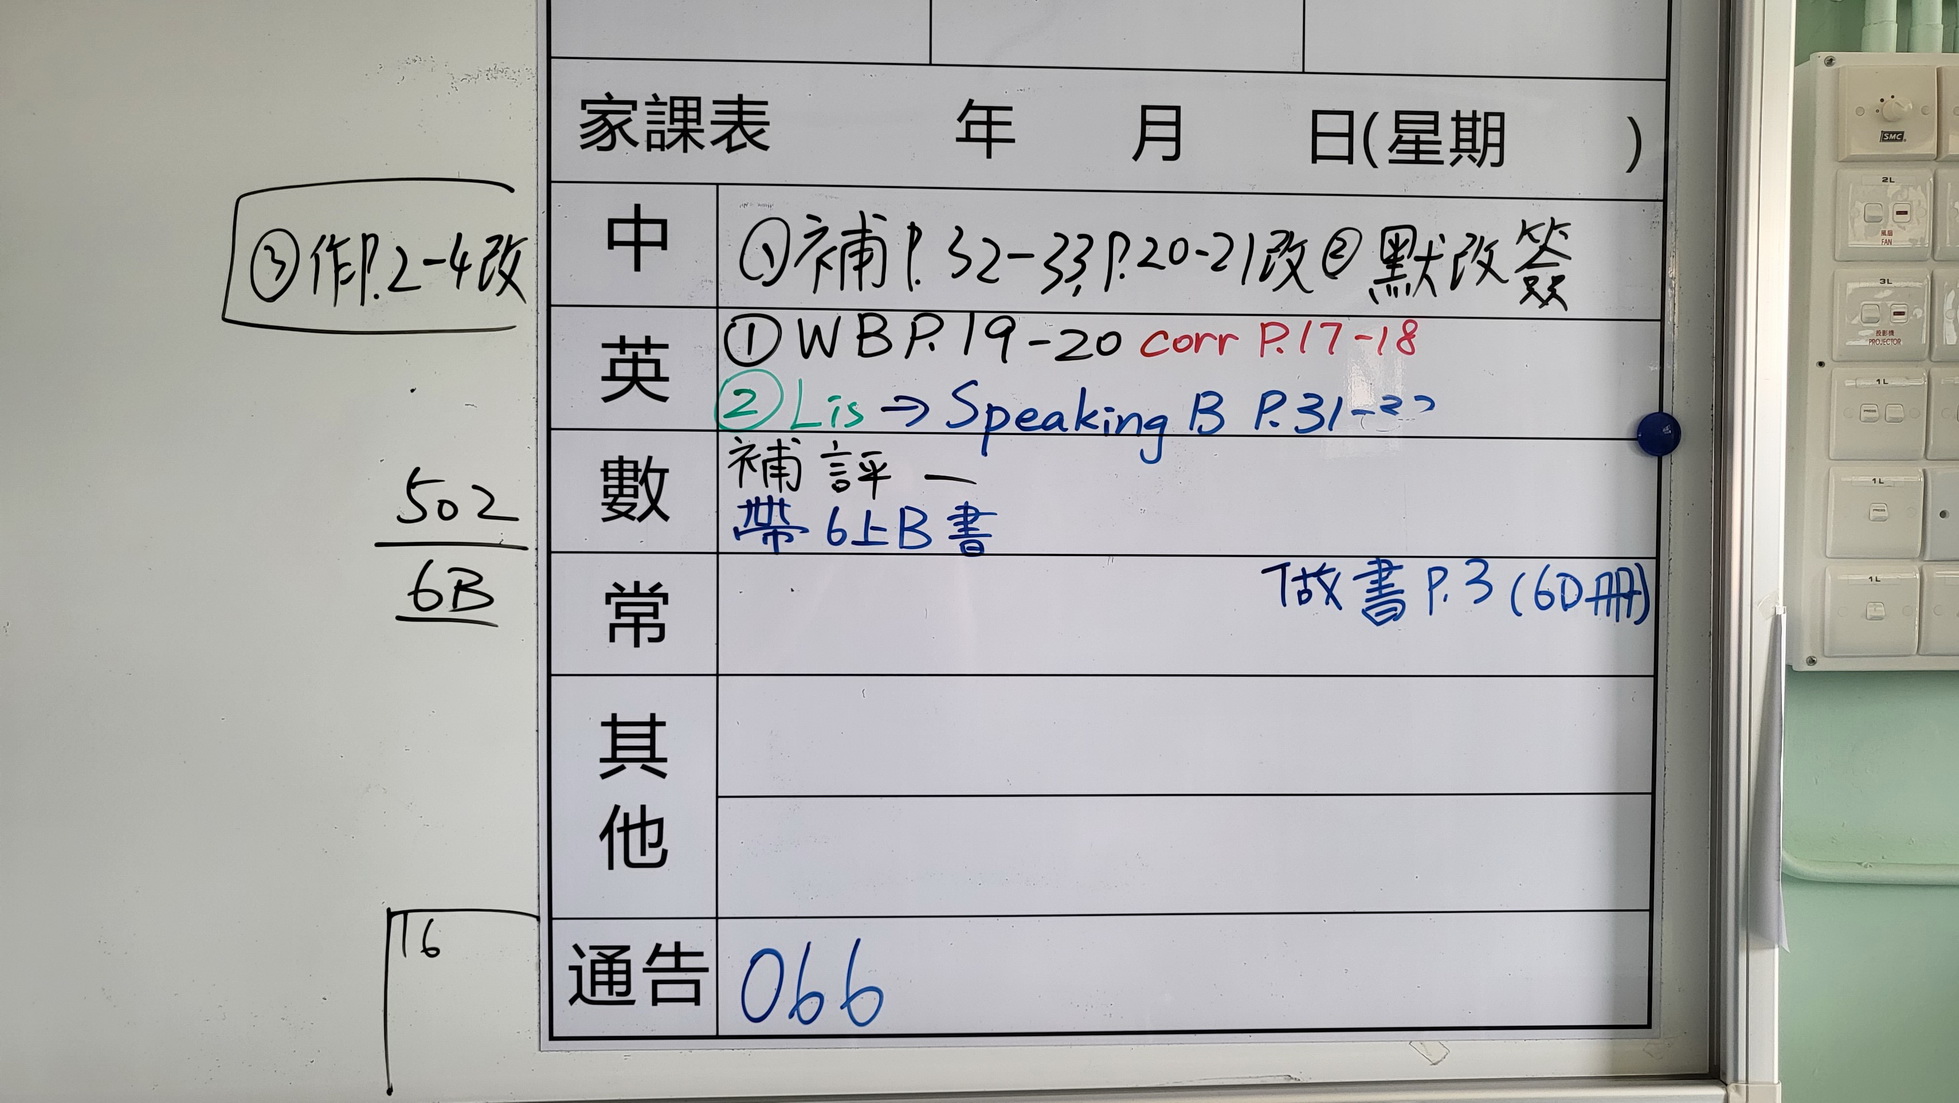 家課表 年 月 日(星期 )
③作P.2-4改
中 ①補P.32-33,P.20-21改②默改簽
英 ①WB P.19-20 corr P.17-18
②Lis→Speaking B P.31-
數 補評一
帶6上B書
502
6B
常 做書P.3(6D冊)
其他
16
通告 066
SMC
2L
風扇
FAN
3L
投影機
PROJECTOR
1L
1L
1L